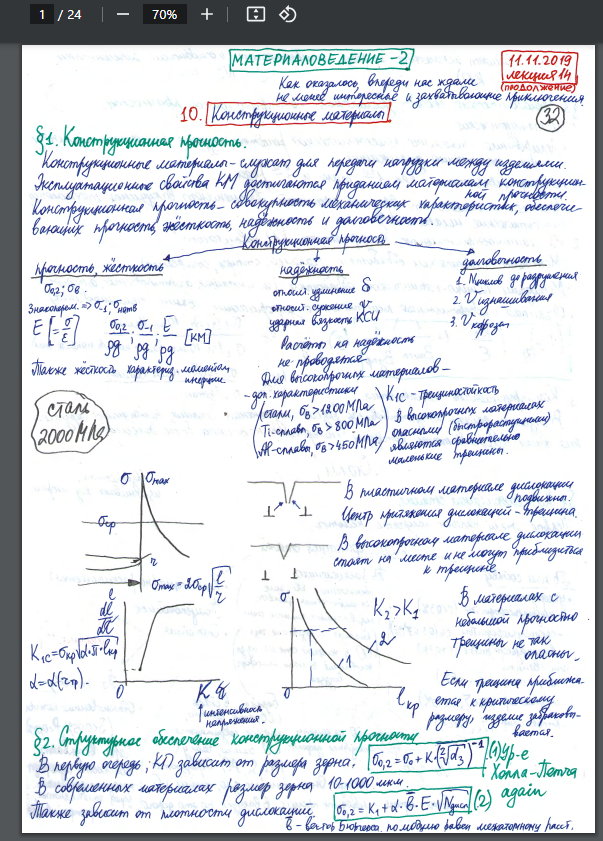 1 / 24 — 70% +
МАТЕРИАЛОВЕДЕНИЕ-2
11.11.2019
лекция 14
(продолжение)
Как оказалось, впереди нас ждали
не менее интересные и захватывающие приключения
32
10. Конструкционные материалы
§1. Конструкционная прочность.
Конструкционные материалы – служат для передачи нагрузки между изделиями.
Эксплуатационные свойства КМ достигаются приданием материалам конструкцион-
ной прочности.
Конструкционная прочность – совокупность механических характеристик, обеспечи-
вающих прочность, жёсткость, надёжность и долговечность.
Конструкционная прочность
прочность, жёсткость
σ0,2; σв.
Знакоперем. => σ-1;
E [= σ/ε] σ0,2/ρg; σ-1/ρg; E/ρg [КМ]
Также жёсткость характериз. моментом
инерции
надёжность
относит. удлинение δ
относит. сужение ψ
ударная вязкость KCU
Расчёты на надёжность
не проводятся.
долговечность
1. Nциклов до разрушения
2. Vизнашивания
3. Vкоррозии
Для высокопрочных материалов –
– доп. характеристики
(стали, σв > 1200 МПа
Ti-сплавы, σв > 800 МПа
Al-сплавы, σв > 450 МПа)
K1C – трещиностойкость
В высокопрочных материалах
опасными (быстрорастущими)
являются сравнительно
маленькие трещины.
сталь
2000 МПа
σ σmax
σср
r
σmax = 2σср√(l/r)
l
В пластичном материале дислокации
подвижны.
Центр притяжения дислокаций – трещина.
В высокопрочном материале дислокации
стоят на месте и не могут приблизиться
к трещине.
dl/dτ
K1C = σкр√(α·π·lкр)
0
K
интенсивность
напряжения.
σ
K2 > K1
1
2
0
lкр
В материалах с
небольшой прочностью
трещины не так
опасны.
Если трещина приближа-
ется к критическому
размеру, изделие забраковы-
вается.
§2. Структурное обеспечение конструкционной прочности
В первую очередь, КП зависит от размера зерна. σ0,2 = σ0 + K·(²√dз)⁻¹ (1) Ур-е
Холла-Петча
again
В современных материалах размер зерна 10-1000 мкм.
Также зависит от плотности дислокаций σ0,2 = K1 + α·b̄·E·√Nдисл (2)
b̄ – вектор Бюргерса. по модулю равен межатомному расст.